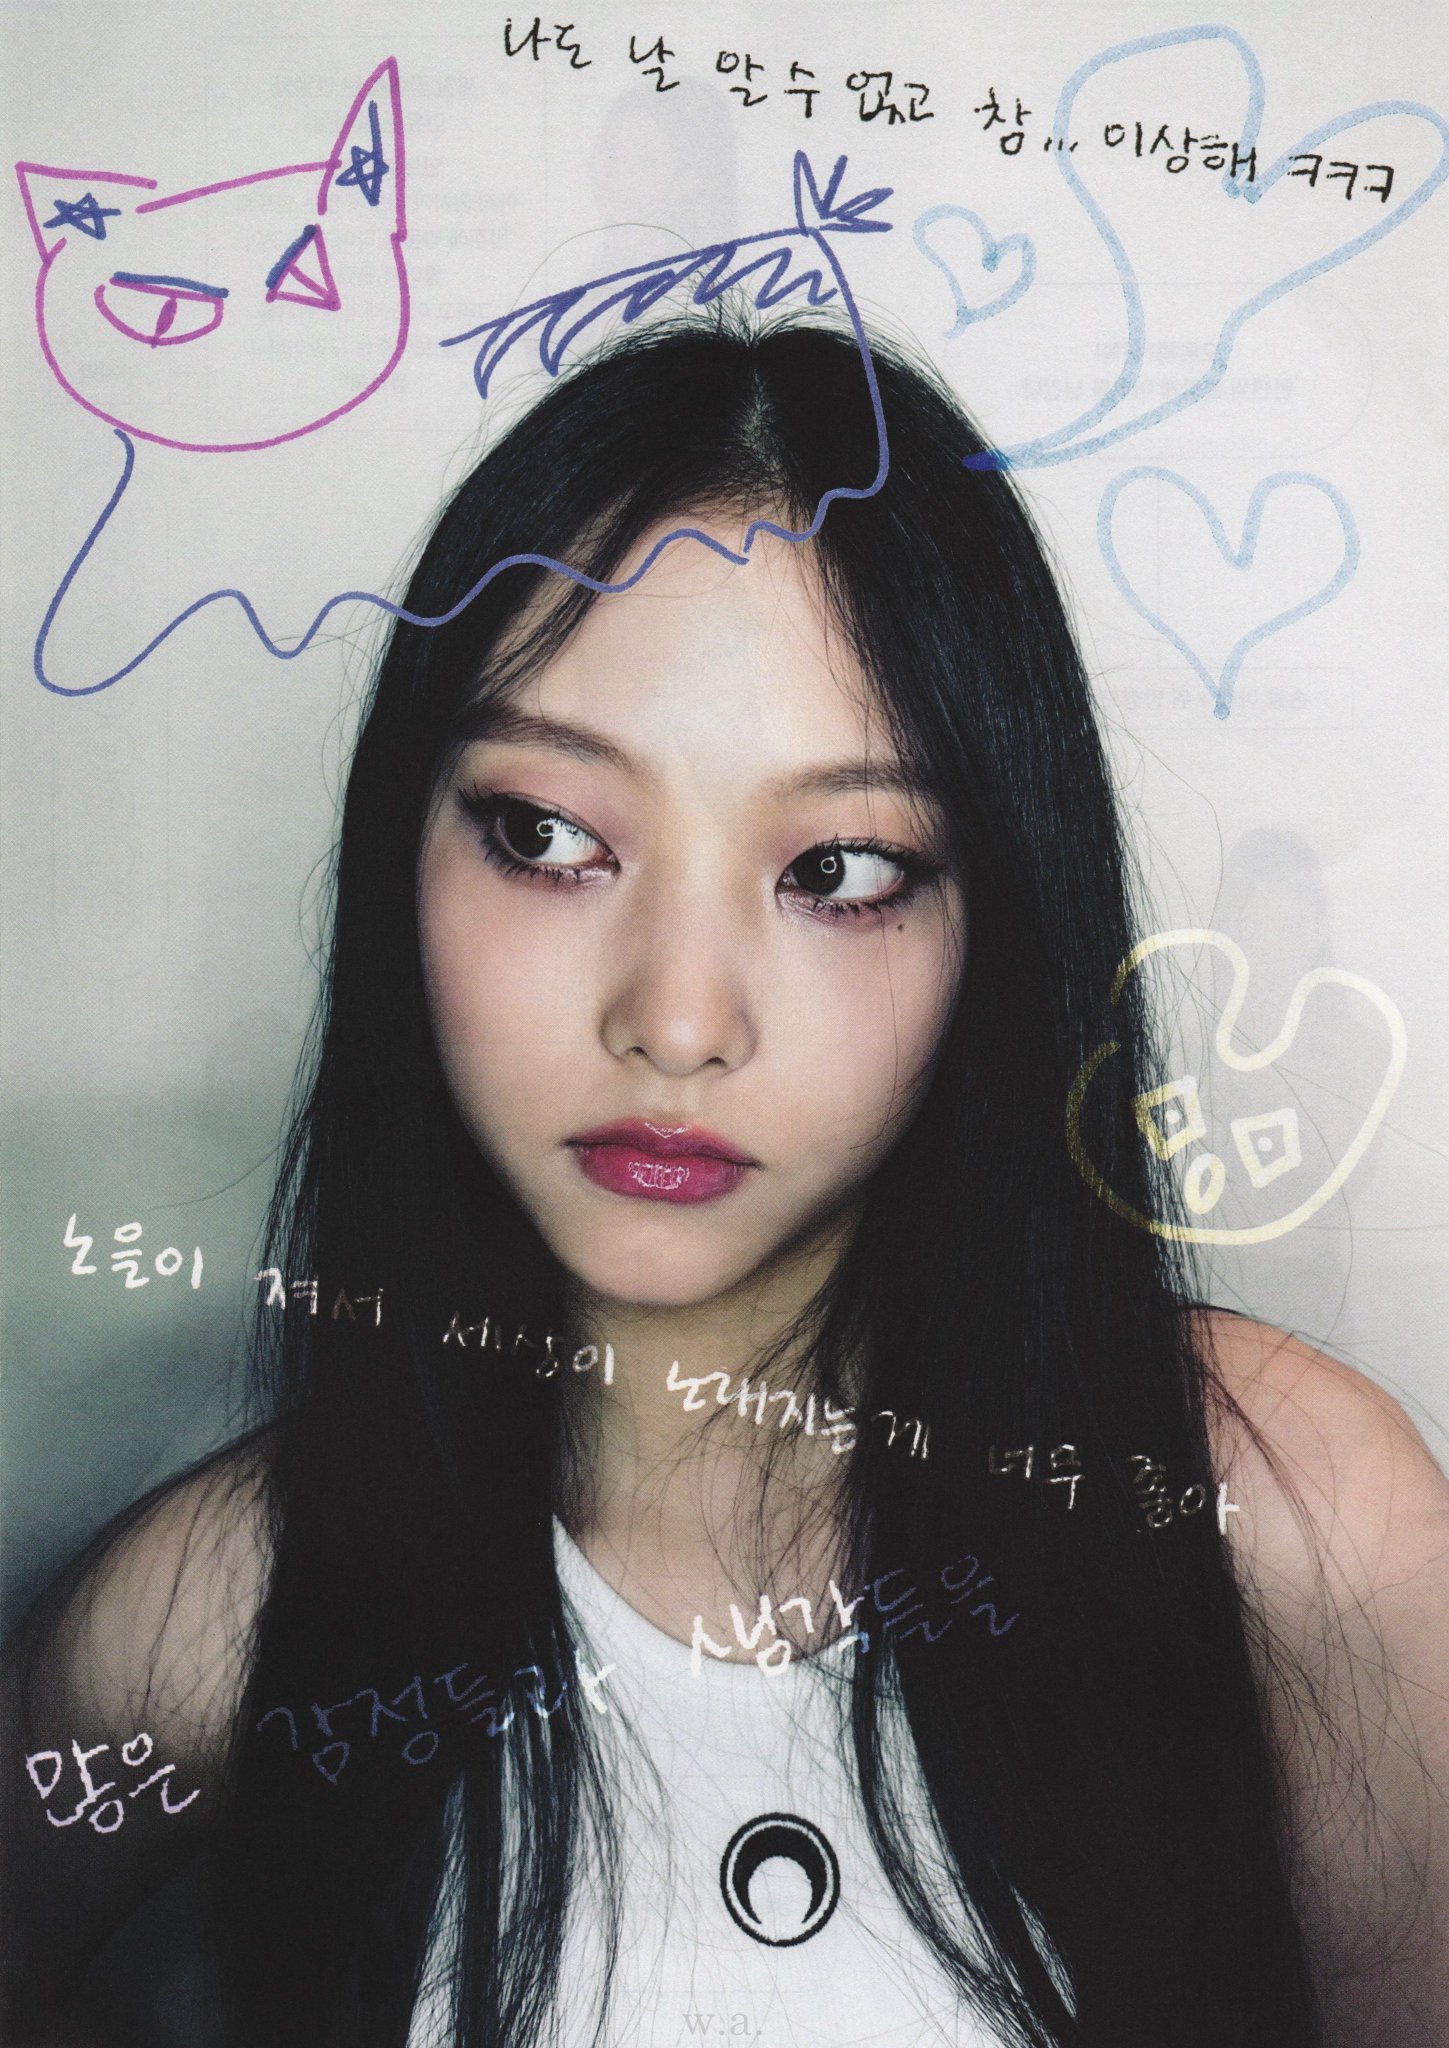 나도 날 알 수 없고 참... 이상해 ㅋㅋㅋ
노을이 져서 세상이 노래지는게 너무 좋아
많은 감정들과 생각들을
w.a.